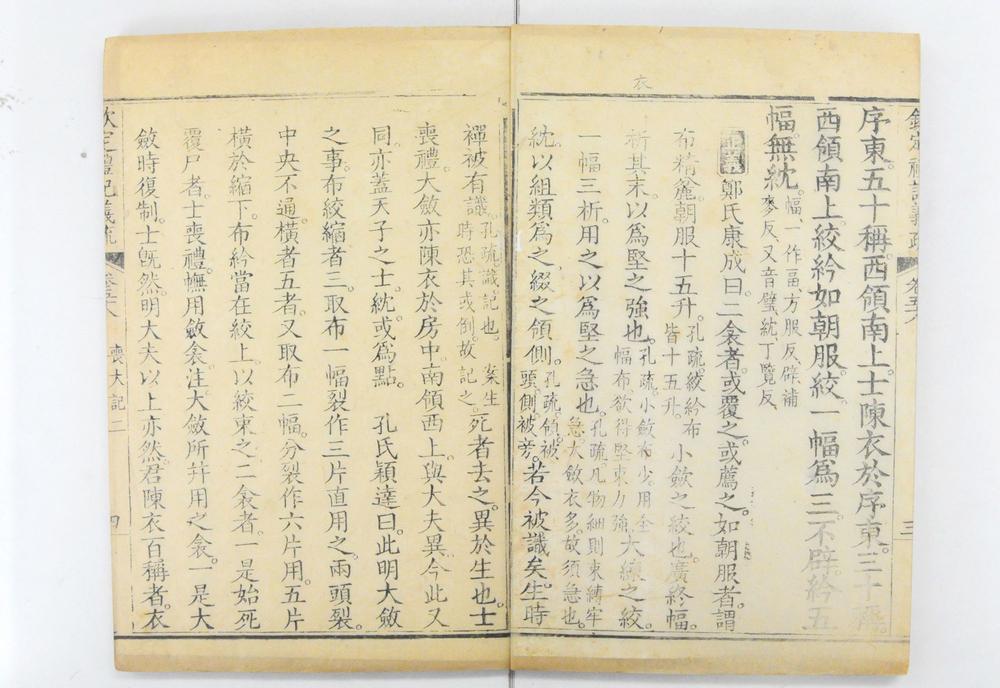 欽定禮記義疏 卷
三
衣
序東。五十稱。西領南上。士陳衣於序東。三十稱。
西領南上。絞紟如朝服。絞一幅爲三。不辟。紟五
幅。無紞。幅、一作畐、方服反、辟、補麥反、又音璧、紞、丁覽反、
正義 鄭氏康成曰。二衾者。或覆之。或薦之。如朝服者。謂
布精麄朝服十五升。孔疏。絞紟布皆十五升。小斂之絞也。廣終幅。
析其末。以爲堅之強也。孔疏。小斂布少。用全幅布。欲得堅束力強。大斂之絞。
一幅三析。用之以爲堅之急也。孔疏。凡物細則束縛牢急。大斂衣多。故須急也。
紞。以組類爲之。綴之領側。孔疏。領被頭。側。被旁。若今被識矣。生時
襌被有識。孔疏。識記也。時恐其或倒。故記之。案生死者去之。異於生也。士
喪禮大斂亦陳衣於房中。南領西上。與大夫異。今此又
同。亦蓋天子之士。紞或爲點。 孔氏穎達曰。此明大斂
之事。布絞縮者三。取布一幅裂作三片直用之。兩頭裂。
中央不通。橫者五者。又取布二幅。分裂作六片用。五片
橫於縮下。布紟當在絞上。以絞束之。二衾者。一是始死
覆尸者。士喪禮。幠用斂衾。注大斂所幷用之衾。一是大
斂時復制。士旣然。明大夫以上亦然。君陳衣百稱者。衣
欽定禮記義疏 卷
喪大記二
四